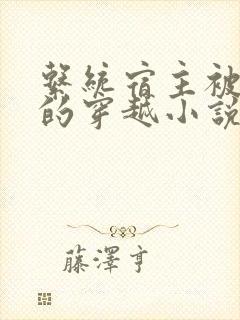 繫統宿主被
的穿越小說
藤澤亨